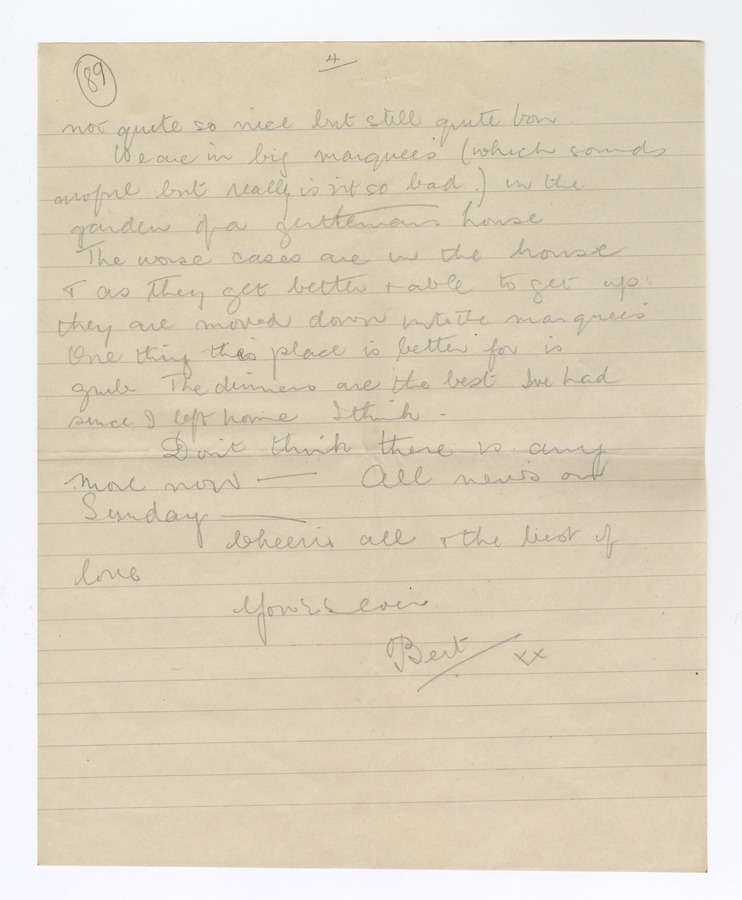 89
4
not quite so nice but still quite bon
We are in big marquees (which sounds
awful but really isn't so bad.) in the
garden of a gentlemans house
The worse cases are in the house
& as they get better & able to get up
they are moved down into the marquees
One thing this place is better for is
grub. The dinners are the best I've had
since I left home I think -
Don't think there is any
more now — All news on
Sunday —
Cheerio all & the best of
love
Yours ever
Bert / xx